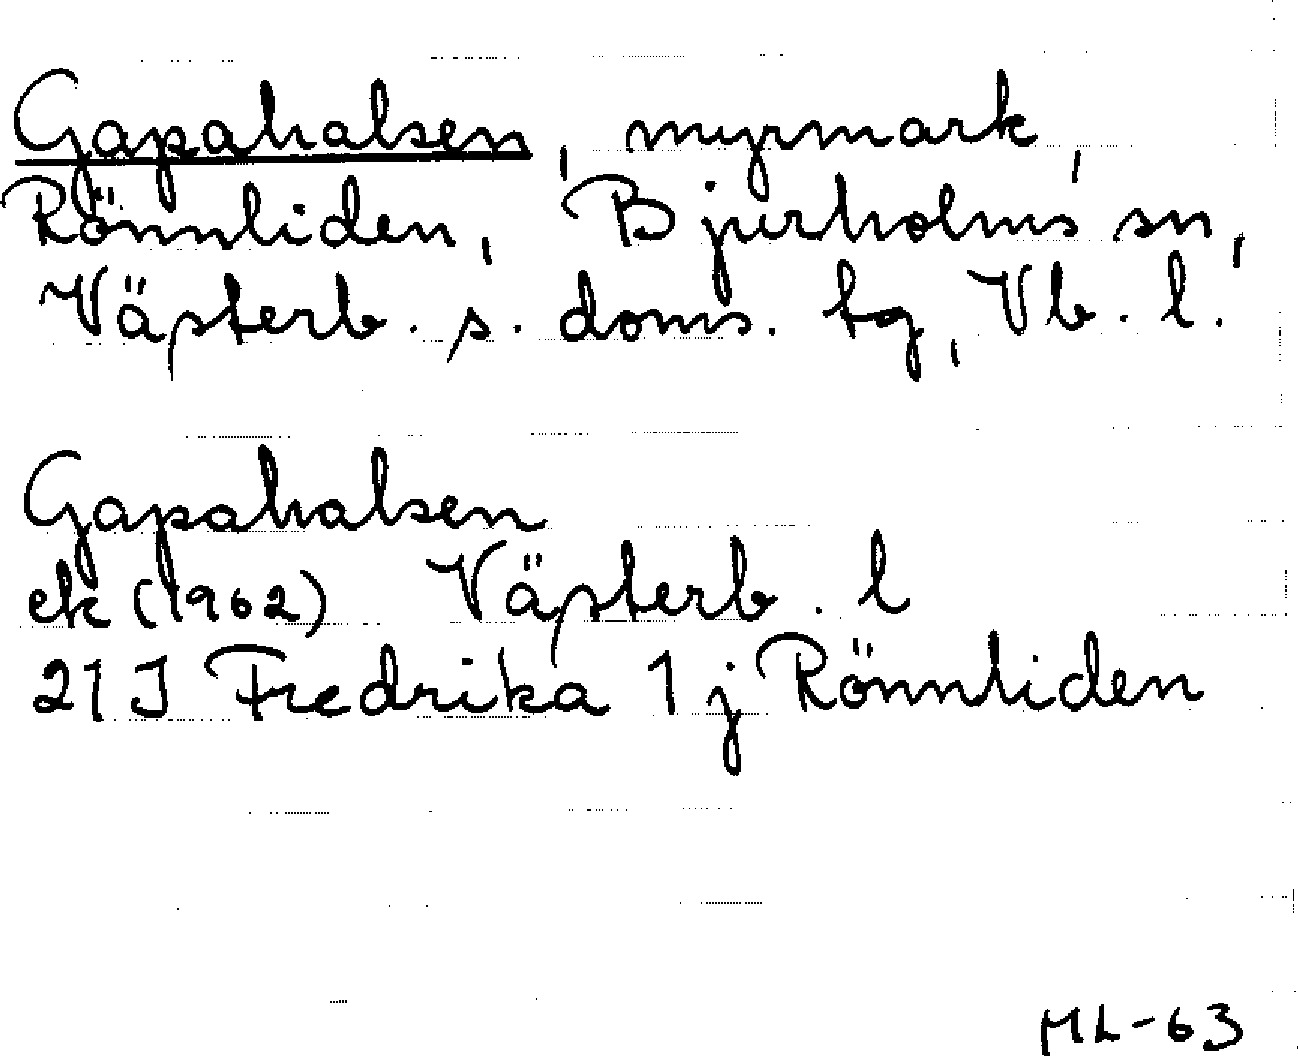 Gapahalsen, myrmark,
Rönnliden, Bjurholms sn,
Västerb. s. doms. tg, Vb. l.
Gapahalsen
ek (1962) Västerb. l
21 J Fredrika 1 j Rönnliden
ML-63